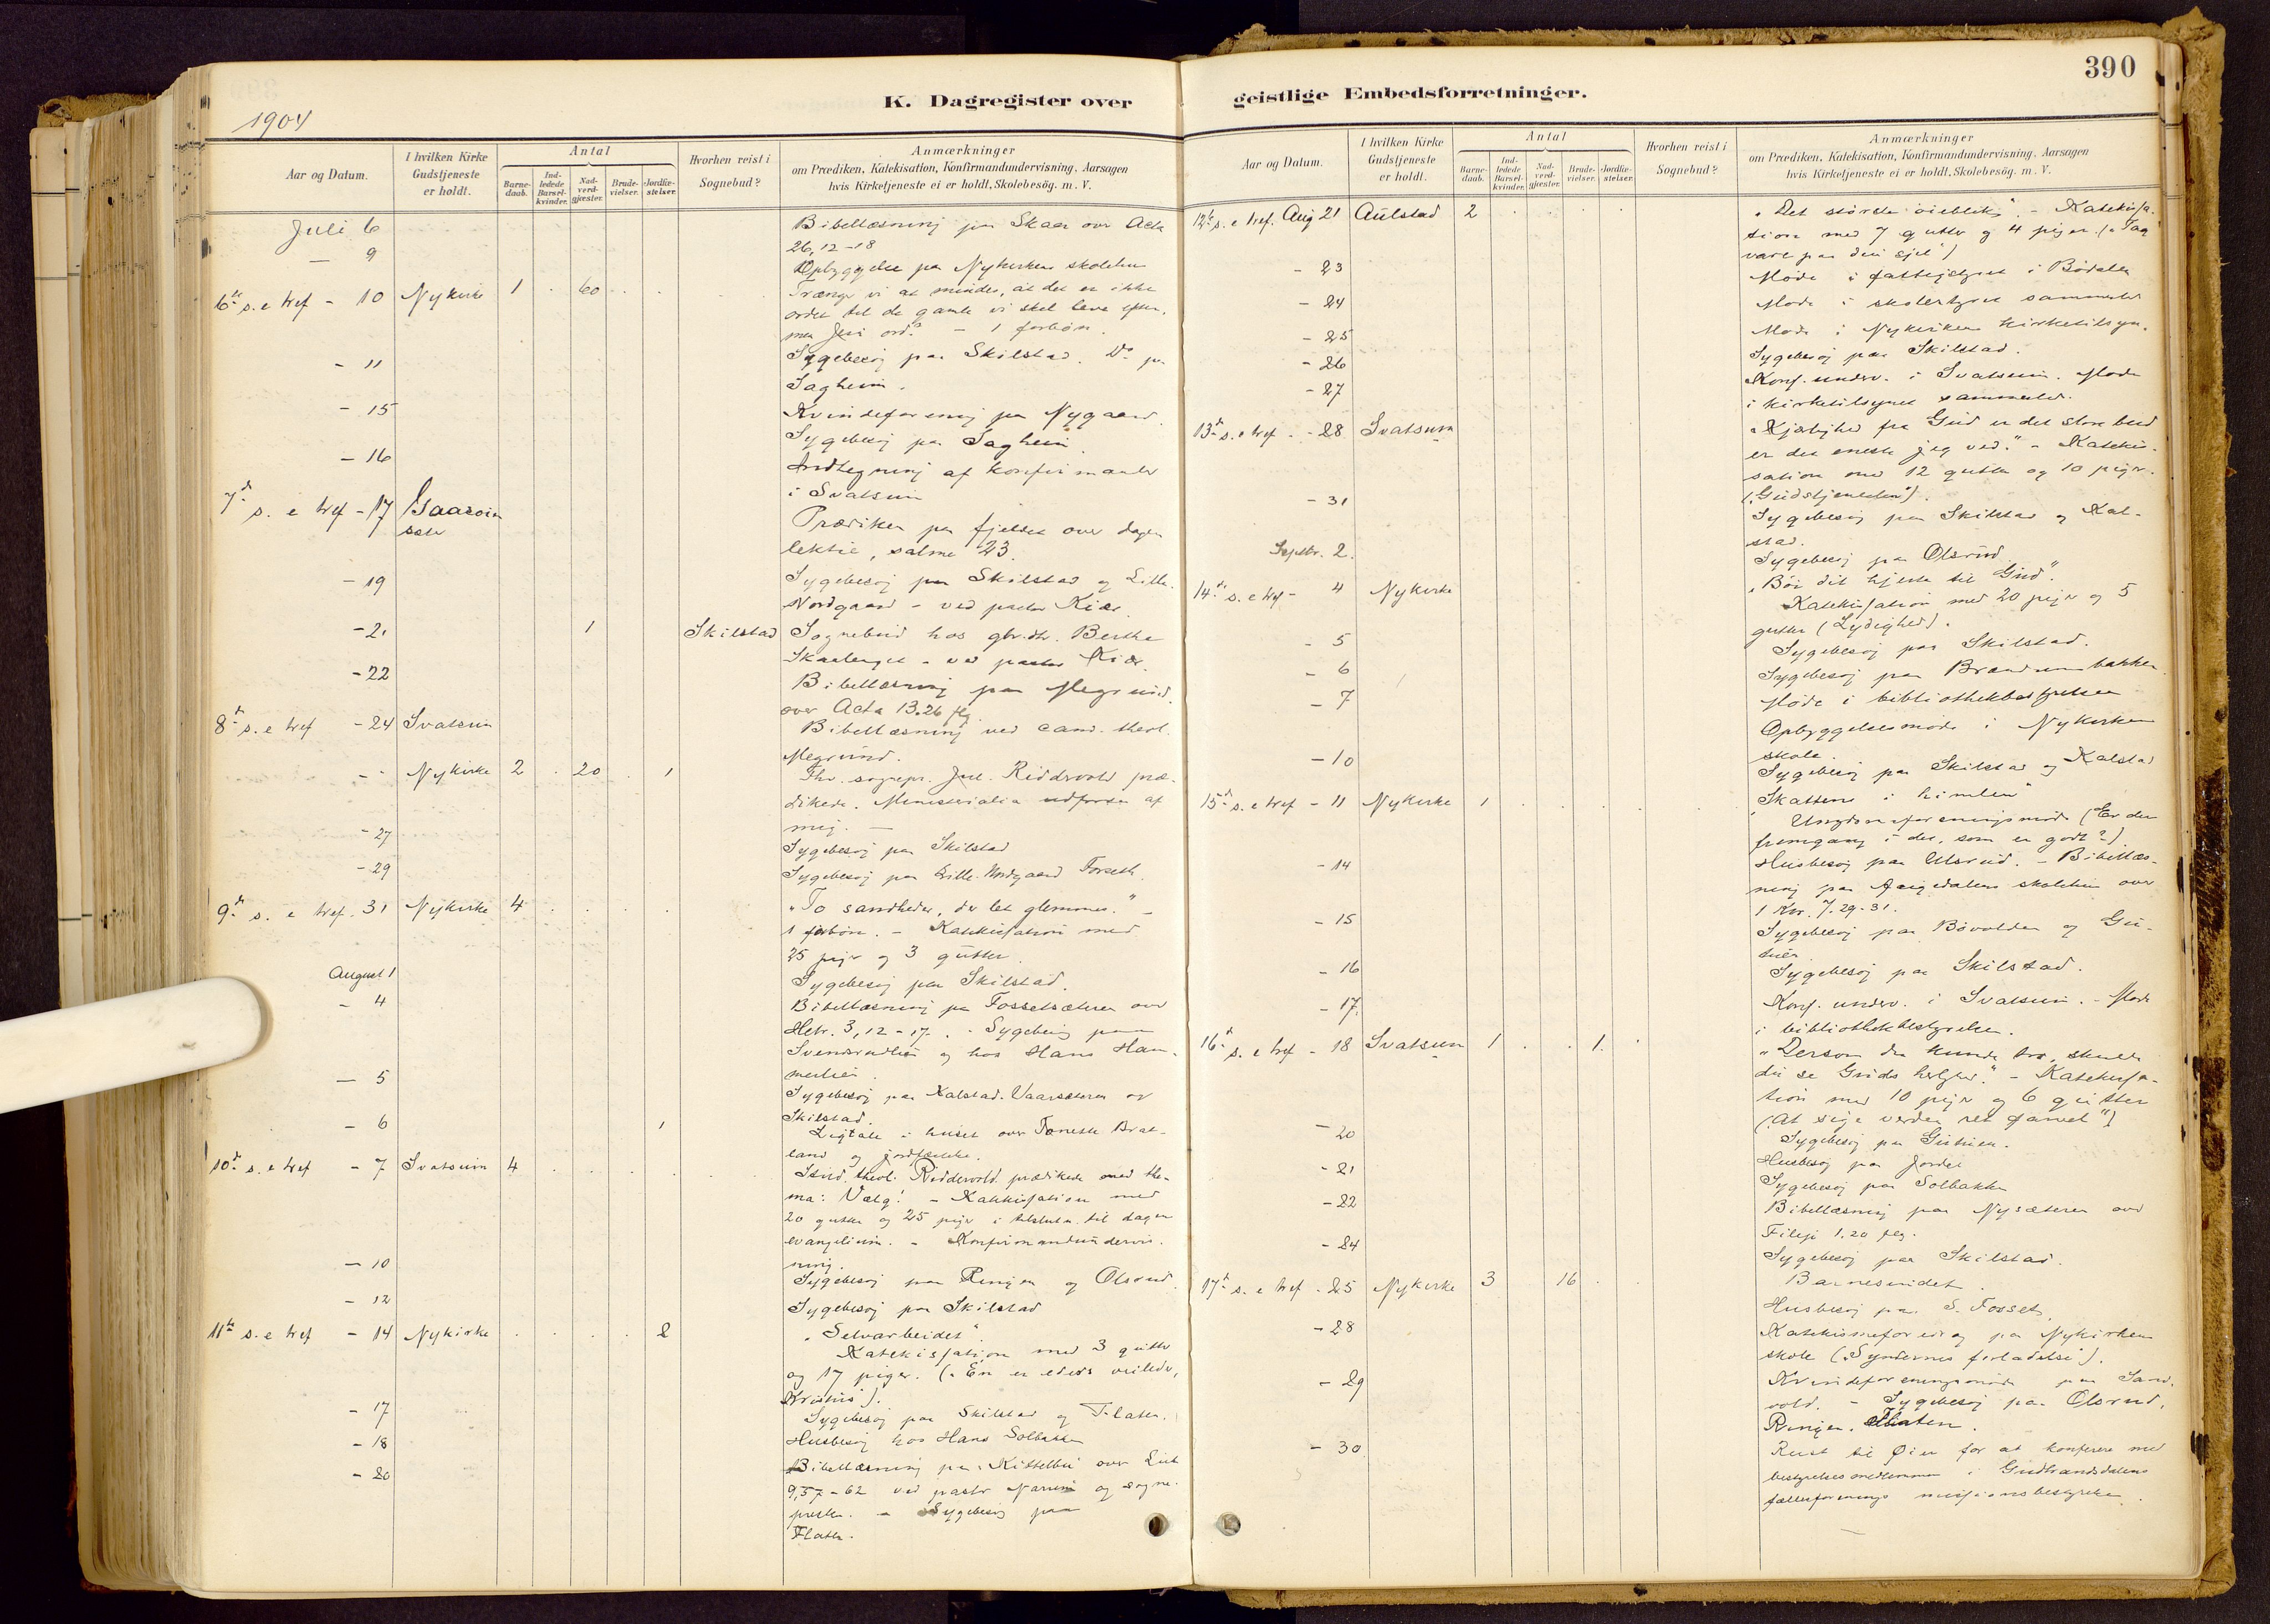 390
K. Dagregister over
geistlige Embedsforretninger.
1904
Aar og Datum.
I hvilken Kirke Gudstjeneste er holdt.
Antal
Barne-daab.
Ind-ledede Barsel-kvinder.
Nad-verd-gjæster.
Brude-vielser.
Jordfæ-stelser.
Hvorhen reist i Sognebud?
Anmærkninger
om Prædiken, Katekisation, Konfirmandundervisning, Aarsagen
hvis Kirketjeneste ei er holdt, Skolebesøg. m. V.
Juli 6 Bibellæsning paa Skaar over Acta
26, 12-18
— 9 Opbyggelse paa Nykirkens skolehus
6te s. e tref - 10 Nykirke 1 60 Trænge vi at mindes, at det er ikke
ordet til de gamle vi skal leve efter,
men Jesu ord? - 1 forbøn.
- 11 Sygebesøg paa Skilstad. Do paa
Sagheim.
- 15 Kvindeforening paa Nygaard.
Sygebesøg paa Sagheim
- 16 Indtegning af konfirmanter
i Svatsum
7de s. e tref - 17 Prædiken paa fjeldet over dagens
lektie, salme 23.
- 19 Sygebesøg paa Skilstad og Lille-
Nordgaard - ved pastor Kiær.
- 21 1 Skilstad Sognebud hos Berthe
- ved pastor Kiær.
- 22 Bibellæsning paa Megrund
over Acta 13.26 flg.
8de s. e tref - 24 Svatsum Bibellæsning ved cand. theol.
Megrund.
- - Nykirke 2 20 1 Thv. sognepr. Jul. Riddervold præ-
dikede. Ministerialia udførtes af
mig. —
- 27 Sygebesøg paa Skilstad
- 29 Sygebesøg paa Lille-Nordgaard Forseth.
9de s. e tref. 31 Nykirke 4 "To sandheder, der let glemmes." -
1 forbøn. - Katekisation med
25 piger og 3 gutter.
August 1 Sygebesøg paa Skilstad.
- 4 Bibellæsning paa Fossetsæteren over
Hebr. 3, 12-17. - Sygebesøg paa
og hos Hans Ham-
merlien.
— 5 Sygebesøg paa Kalstad. Vaarsæteren og
Skilstad.
- 6 1 Ligtale i huset over
og jordfæstelse.
10de s. e tref - 7 Svatsum 4 Stud. theol. Riddervold prædikede med the-
ma: Vælg! - Katekisation med
20 gutter og 25 piger i tilslutn. til dagens
evangelium. - Konfirmandundervis-
ning.
— 10 Sygebesøg paa Ringen og Olsrud.
- 12 Sygebesøg paa Skilstad
11te s. e tref - 14 Nykirke 2 "Selvarbeidet".
Katekisation med 3 gutter
og 17 piger. ("En er eders veileder,
Kristus").
- 17 Sygebesøg paa Skilstad og Flaten.
- 18 Husbesøg hos Hans Solbakken
- 20 Bibellæsning paa Kittelbu over Luk
9, 57-62 ved pastor og sogne-
presten. - Sygebesøg paa
Flaten.
Aar og Datum.
I hvilken Kirke Gudstjeneste er holdt.
Antal
Barne-daab.
Ind-ledede Barsel-kvinder.
Nad-verd-gjæster.
Brude-vielser.
Jordfæ-stelser.
Hvorhen reist i Sognebud?
Anmærkninger
om Prædiken, Katekisation, Konfirmandundervisning, Aarsagen
hvis Kirketjeneste ei er holdt, Skolebesøg. m. V.
12te s. e tref. Aug 21 Aulstad 2 "Det største øieblik". - Katekisa-
tion med 7 gutter og 4 piger. ("Tag
vare paa din sjel")
- 23 Møde i fattigstyret i Bødalen
- 24 Møde i skolestyret sammested
- 25 Møde i Nykirkens kirketilsyn.
- 26 Sygebesøg paa Skilstad.
- 27 Konf. underv. i Svatsum. Møde
i kirketilsynet sammested.
13de s. e tref. - 28 Svatsum "Kjærlighed fra Gud er det store bud
er det eneste jeg ved." - Kateki-
sation med 12 gutter og 10 piger.
("Gudstjenesten").
- 31 Sygebesøg paa Skilstad og Kal-
stad.
Septbr. 2. Sygebesøg paa Olsrud
14de s. e tref - 4 Nykirke "Bøi dit hjerte til Gud".
Katekisation med 20 piger og 5
gutter (Lydighed).
- 5 Sygebesøg paa Skilstad.
- 6 Sygebesøg paa
- 7 Møde i bibliothekbestyrelsen
Opbyggelsesmøde i Nykirkens
skole.
- 10 Sygebesøg paa Skilstad og Kalstad
15de s. e tref - 11 Nykirke 1 "Skatten i himlen"
Ungdomsforeningsmøde (Er der
fremgang i det, som er godt?)
- 14 Husbesøg paa Olsrud. - Bibellæs-
ning paa skolehus over
1 Kor. 7. 29-31.
- 15 Sygebesøg paa og
- 16 Sygebesøg paa Skilstad.
- 17 Konf. underv. i Svatsum. - Møde
i bibliothekbestyrelsen.
16de s. e tref - 18 Svatsum 1 1 "Dersom du kunde tro, skulde
du se Guds herlighed." - Katekisa-
tion med 10 piger og 6 gutter
(At sige verden ret farvel")
- 20 Sygebesøg paa
- 21 Husbesøg paa Jordet
Sygebesøg paa Solbakken
- 22 Bibellæsning paa Nysæteren over
Filip. 1. 20 flg.
- 24 Sygebesøg paa Skilstad.
17de s. e tref - 25 Nykirke 3 16 Barnesindet.
Husbesøg paa S. Fosset.
- 28 Katekismeforedrag paa Nykirkens
skole ("Syndernes forladelse").
- 29 Kvindeforeningsmøde paa Sand-
vold. - Sygebesøg paa Olsrud,
Ringen. Flaten.
- 30 Reist til Øier for at konferere med
bestyrelsesmedlemmer i Gudbrandsdalens
fællesforenings missionsbestyrelse.